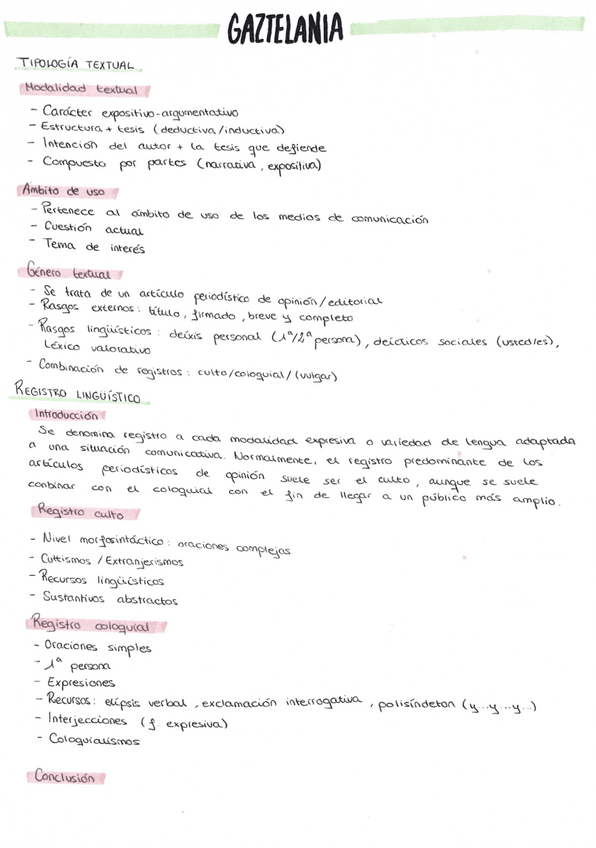 GAZTELANIA
TIPOLOGÍA TEXTUAL
Modalidad textual
- Carácter expositivo-argumentativo
- Estructura + tesis (deductiva/inductiva)
- Intención del autor + la tesis que defiende
- Compuesto por partes (narrativa, expositiva)
Ámbito de uso
- Pertenece al ámbito de uso de los medios de comunicación
- Cuestión actual
- Tema de interés
Género textual
- Se trata de un artículo periodístico de opinión/editorial
- Rasgos externos: título, firmado, breve y completo
- Rasgos lingüísticos: deíxis personal (1ª/2ª persona), deícticos sociales (usted/es),
Léxico valorativo
- Combinación de registros: culto/coloquial/(vulgar)
REGISTRO LINGÜÍSTICO
Introducción
Se denomina registro a cada modalidad expresiva o variedad de lengua adaptada
a una situación comunicativa. Normalmente, el registro predominante de los
artículos periodísticos de opinión suele ser el culto, aunque se suele
conbinar con el coloquial con el fin de llegar a un público más amplio.
Registro culto
- Nivel morfosintáctico: oraciones complejas
- Cultismos / Extranjerismos
- Recursos lingüísticos
- Sustantivos abstractos
Registro coloquial
- Oraciones simples
- 1ª persona
- Expresiones
- Recursos: elipsis verbal, exclamación interrogativa, polisíndeton (y...y...y...)
- Interjecciones (f expresiva)
- Coloquialismos
Conclusión